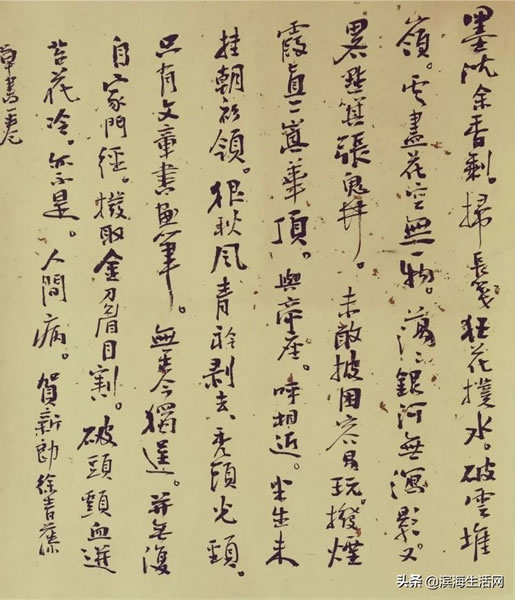 墨沈余香剩。掃長箋狂花撲水。破雲堆
嶺。雲盡花空無一物。蕩〻銀河無瀉影。又
畧點箕張鬼井。未敢披圖容易玩。撥煙
霞直上嵩華頂。與帝座。呼相近。半生未
挂朝衫領。狠秋風青衿剥去禿頭光頸。
只有文章書畫筆。無古今獨逞。并無復
自家門徑。拔取金刀眉目割。破頭顱血迸
苔花冷。亦不是。人間病。賀新郎徐青藤
草書一卷
头条 @滨海生活网